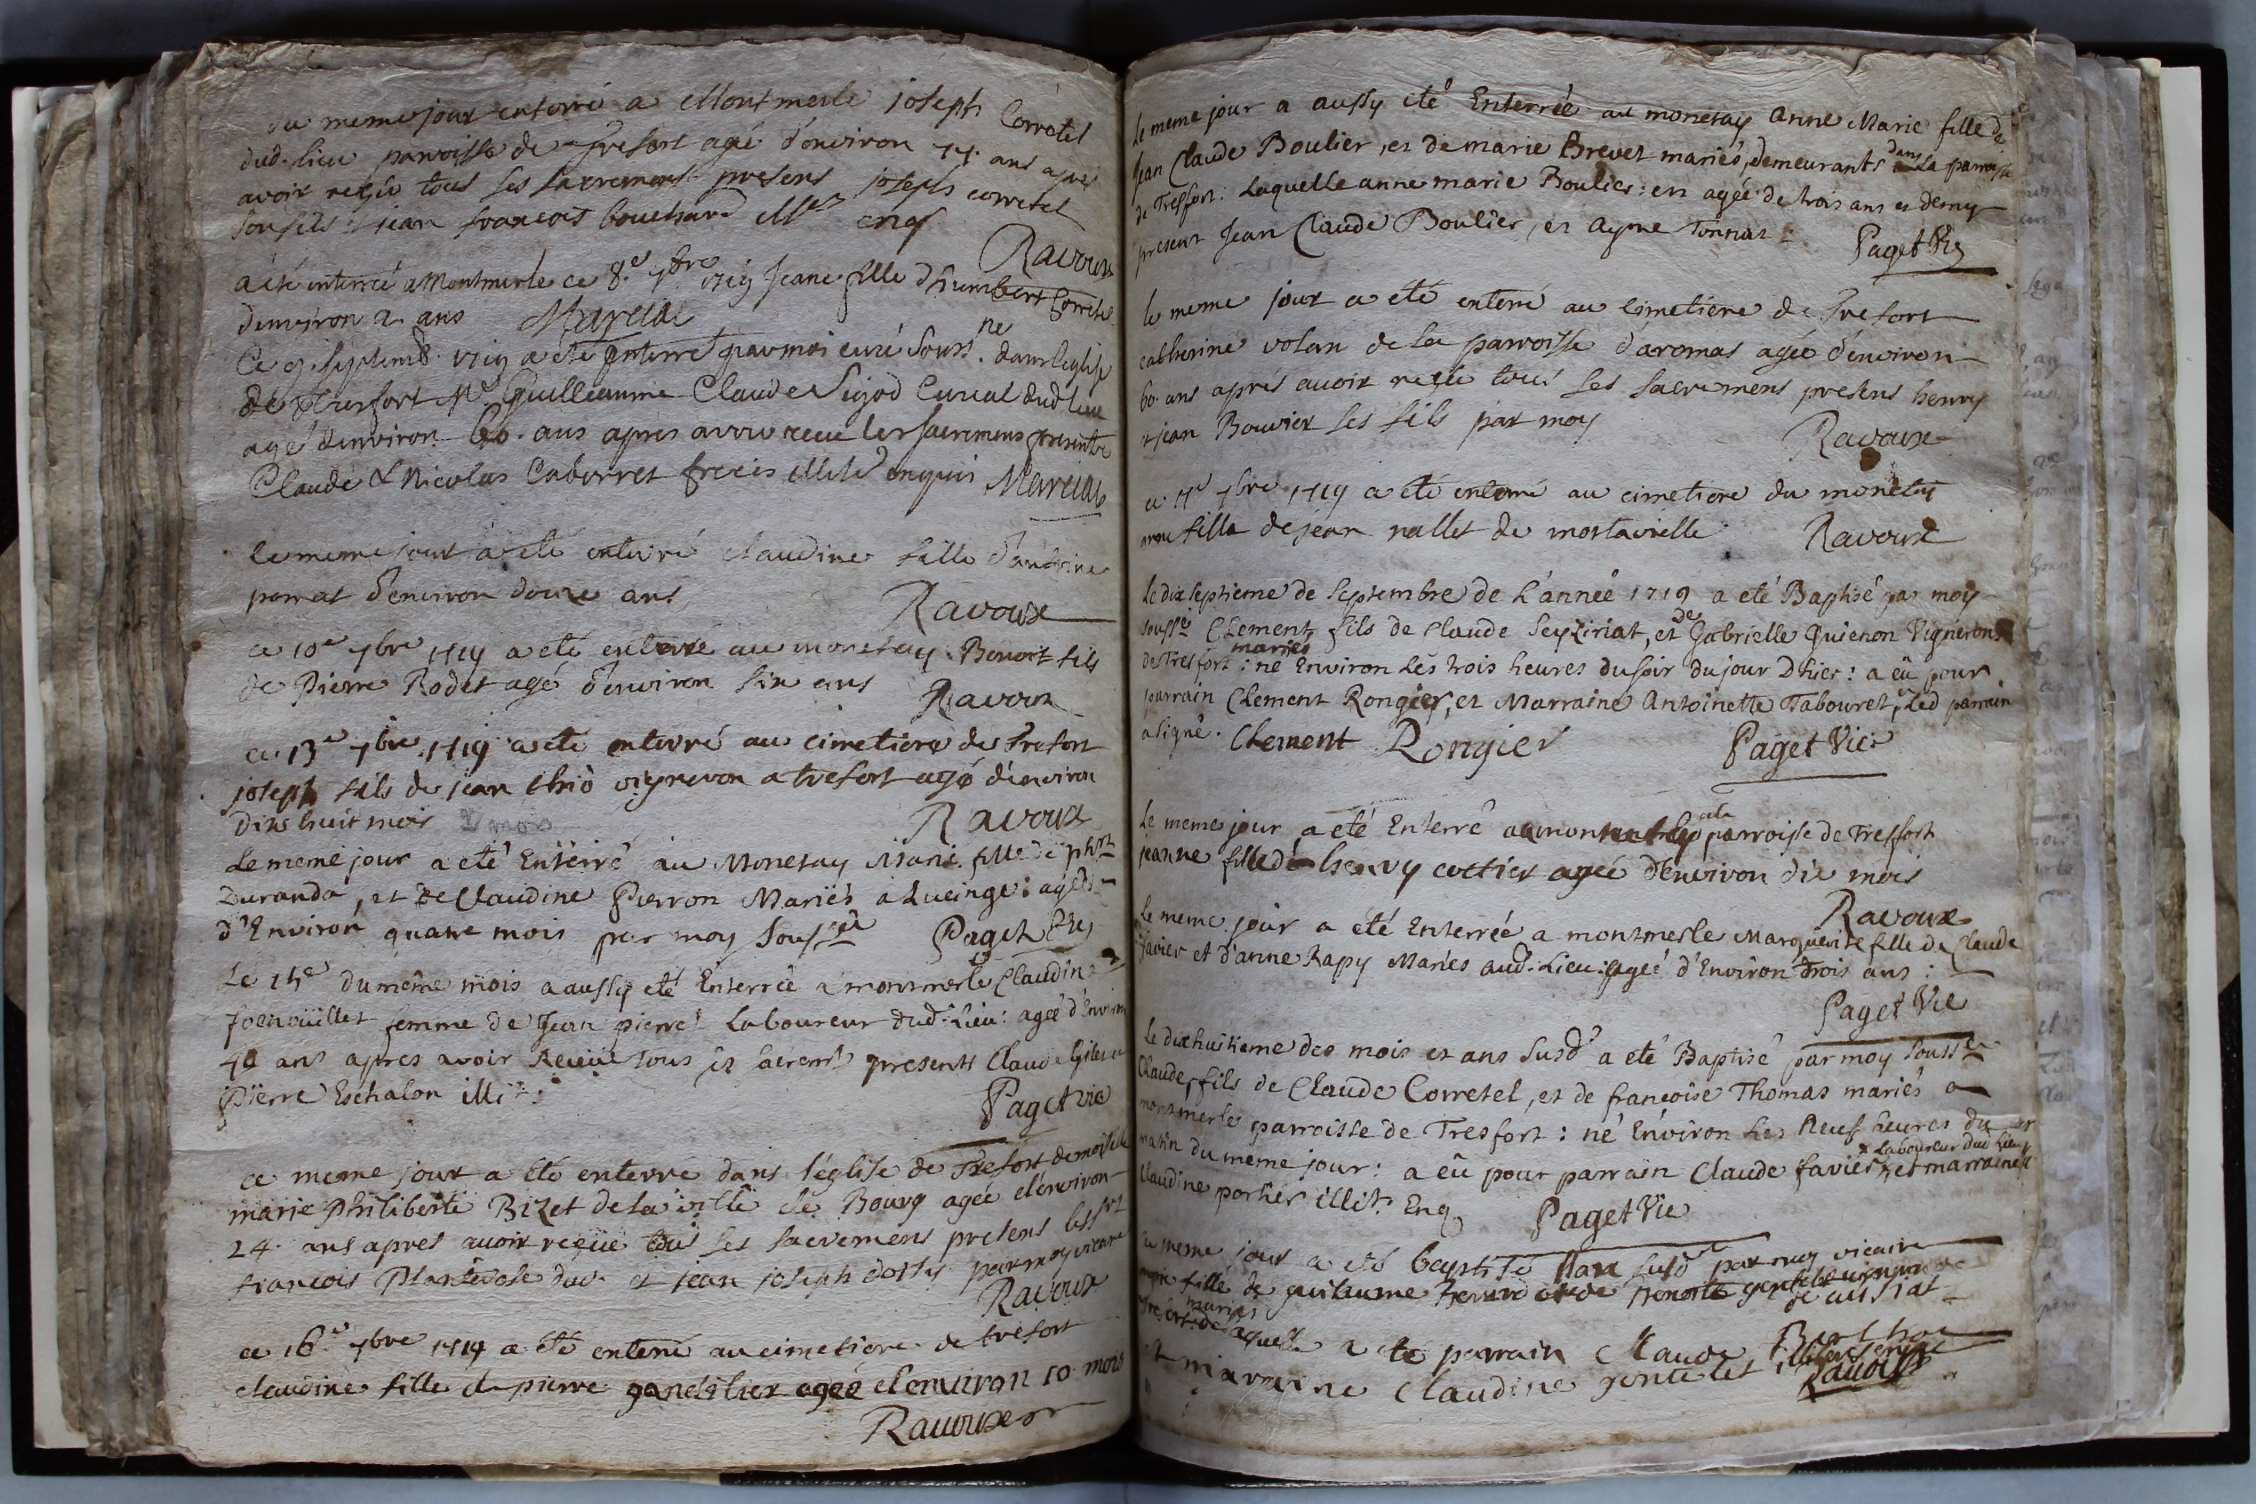 du meme jour enterré a Montmerle joseph Corretel
dud. lieu parroisse de Tresfort agé d'environ ans apres
avoir reçu tous ses sacremens presens joseph corretel
son fils jean françois bouchard enq
Ravoux
a été enterré a Montmerle ce 8e 7bre 1719 Jeane fille d'humbert Corretel
d'environ 2 ans Marcial
Ce 9 septemb. 1719 a été enterré par moi curé souss.né dans l'eglise
de Tresfort Mr Guillaume Claude Sijod Curial dud lieu
agé d'environ 60 ans apres avoir receu les sacremens presents
Claude & Nicolas Cabourret freres enquis Marcial
le meme jour a été enterré claudine fille d'antoine
parrat d'environ douze ans
Ravoux
ce 10e 7bre 1719 a eté enterré au monetay Benoit fils
de Pierre Rodet agé d'environ six ans Ravoux
ce 13e 7bre 1719 a eté enterré au cimetiere de Tresfort
joseph fils de jean vigneron a tresfort agé d'environ
dixs huit mois
Ravoux
Le meme jour a eté Enterré au Monetay Marie fille de phirt
Durande, et de Claudine Pierron Mariés a Lucinge: agée
d'Environ quatre mois par moy souss.né Paget Vic
Le 14e du même mois a aussy eté Enterrée a montmerle Claudine
foenoüillet femme de Jean pierre Laboureur dud. Lieu: agée d'Environ
ans apres avoir Receüe tous presents Claude
Pierre Eschalon illit:
Paget vic
ce meme jour a eté enterré dans l'église de Tresfort demoiselle
marie Philiberte Bizet de la ville de Bourg agée d'environ
24 ans apres avoir reçüe tous les sacremens presens
françois et jean joseph par moy vicaire
Ravoux
ce 16e 7bre 1719 a été enterré au cimetiere de tresfort
claudine fille de pierre agée d'environ 10 mois
Ravoux
Le meme jour a aussy eté Enterrée au monetay Anne Marie fille de
Jean Claude Boulier, et de marie Brevet mariés, demeurants dans La parroisse
de Tresfort: Laquelle anne marie Boulier: est agée de trois ans et demy
present Jean Claude Boulier, et Ayme Tonnat: Paget Vic
le meme jour a été enterré au cimetiere de Tresfort
catherine volan de la parroisse d'aromas agée d'environ
60 ans aprés avoir reçeu tous les sacremens presens henry
et jean Bouvier ses fils par moy
Ravoux
ce 17e 7bre 1719 a été enterré au cimetiere du monetay
anne fille de jean nallet de
Ravoux
Le dix septieme de Septembre de l'année 1719 a eté Baptisé par moy
sousse Clement fils de Claude Seyziriat, et de Gabrielle Guienon Vignerons
mariés
de Tresfort: né Environ Les trois heures du soir du jour D'hier: a eü pour
parrain Clement Rongier, et Marraine Antoinette Tabouret, Led parrain
a signé. Clement Rongier Paget Vic
Le meme jour a eté Enterré parroisse de Tresfort
jeanne fille de henry cottier agée d'environ dix mois
Ravoux
Le meme jour a eté Enterrée a montmerle Marguerite fille de Claude
favier et d'anne Rapy Mariés aud. Lieu: agée d'Environ trois ans:
Paget Vic
Le dixhuitieme des mois et ans susd. a eté Baptisé par moy sousse
Claude, fils de Claude Corretel, et de françoise Thomas mariés a
montmerle parroisse de Tresfort: né Environ Les Neuf heures du
matin du meme jour: a eü pour parrain Claude favier Laboureur dud Lieu, et marraine
Claudine portier illit. Enq Paget Vic
ce meme jour a été baptisé l'an susd par moy vicaire
fille de guillaume
mariés
laquelle a ete parrain claude
et marraine claudine
Ravoux